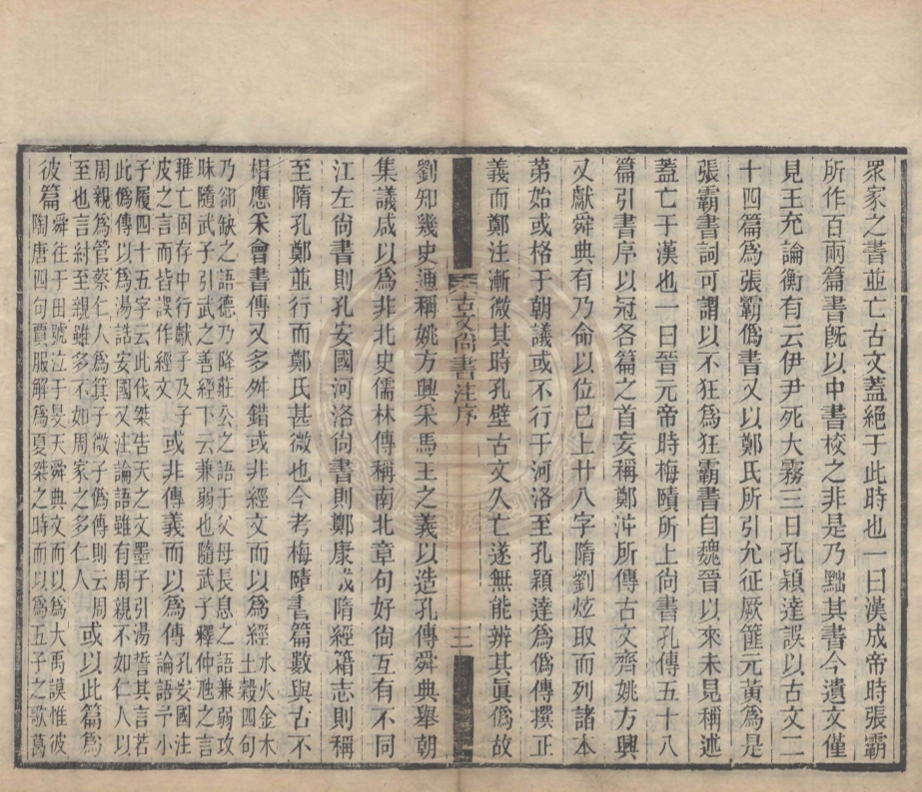 眾家之書並亡古文蓋絕于此時也一曰漢成帝時張霸
所作百兩篇書旣以中書校之非是乃黜其書今遺文僅
見王充論衡有云伊尹死大霧三日孔穎達誤以古文二
十四篇爲張霸僞書又以鄭氏所引允征厥篚元黃爲是
張霸書詞可謂以不狂爲狂霸書自魏晉以來未見稱述
蓋亡于漢也一曰晉元帝時梅賾所上尙書孔傳五十八
篇引書序以冠各篇之首妄稱鄭沖所傳古文齊姚方興
又獻舜典有乃命以位已上廿八字隋劉炫取而列諸本
第始或格于朝議或不行于河洛至孔穎達爲僞傳撰正
義而鄭注漸微其時孔壁古文久亡遂無能辨其眞僞故
古文尙書注序
三
劉知幾史通稱姚方興采馬王之義以造孔傳舜典舉朝
集議咸以爲非北史儒林傳稱南北章句好尙互有不同
江左尙書則孔安國河洛尙書則鄭康成隋經籍志則稱
至隋孔鄭並行而鄭氏甚微也今考梅賾書篇數與古不
相應采會書傳又多舛錯或非經文而以爲經水火金木
土穀四句
乃郤缺之語德乃降莊公之語于父母長息之語兼弱攻
昧隨武子引武之善經下云兼弱也隨武子釋仲虺之言
推亡固存中行獻子及子
皮之言而皆誤作經文
或非傳義而以爲傳孔安國注
論語予小
子履四十五字云此伐桀告天之文墨子引湯誓其言若
此僞傳以爲湯誥安國又注論語雖有周親不如仁人以
周親爲管蔡仁人爲箕子微子僞傳則云周
至也言紂至親雖多不如周家之多仁人
或以此篇爲
彼篇舜往于田號泣于旻天舜典文而以爲大禹謨惟彼
陶唐四句賈服解爲夏桀之時而以爲五子之歌萬